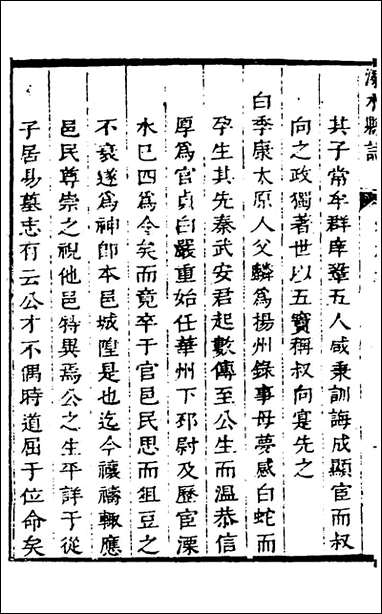 溧水縣誌
其子常牟群庠鞏五人咸秉訓誨成顯宦而叔
向之政獨著世以五竇稱叔向寔先之
白季康太原人父鏻爲揚州錄事母夢感白蛇而
孕生其先秦武安君起數傳至公生而溫恭信
厚爲官貞白嚴重始任華州下邳尉及歷宦溧
水巳四爲令矣而竟卒于官邑民思而俎豆之
不衰遂爲神卽本邑城隍是也迄今禳禱輒應
邑民尊崇之視他邑特異焉公之生平詳于從
子居易墓志有云公才不偶時道屈于位命矣